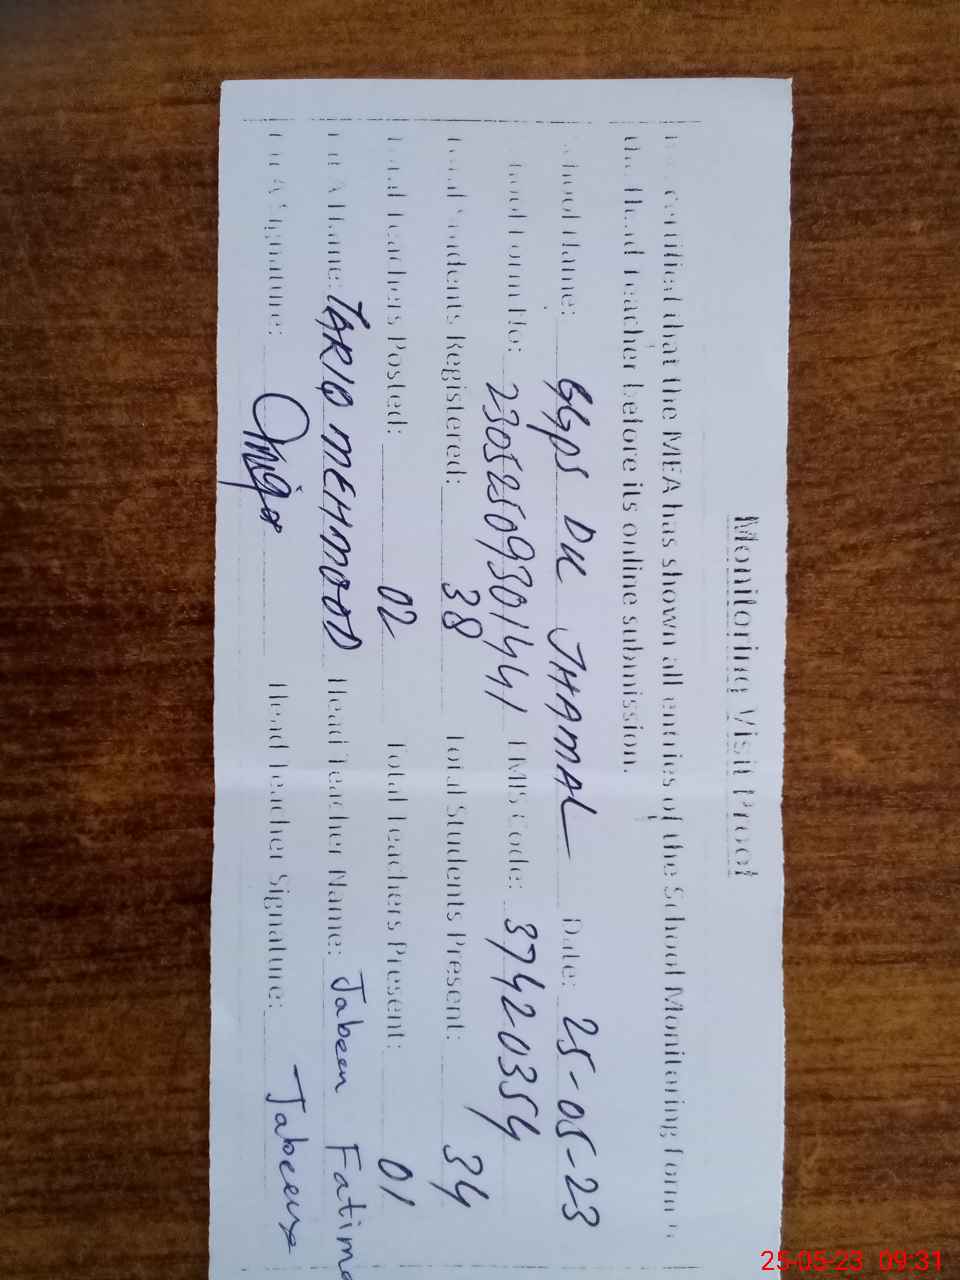 Monitoring Visit Proof
It is certified that the MEA has shown all entries of the School Monitoring Form to
the Head Teacher before its online submission.
School Name: GGPS DK JHAMAL Date: 25-05-23
School Form No: 23052509301441 EMIS Code: 37420354
Total Students Registered: 38 Total Students Present: 34
Total Teachers Posted: 02 Total Teachers Present: 01
MEA Name: TARIQ MEHMOOD Head Teacher Name: Jabeen Fatima
MEA Signature: Head Teacher Signature: Jabeen
25-05-23 09:31